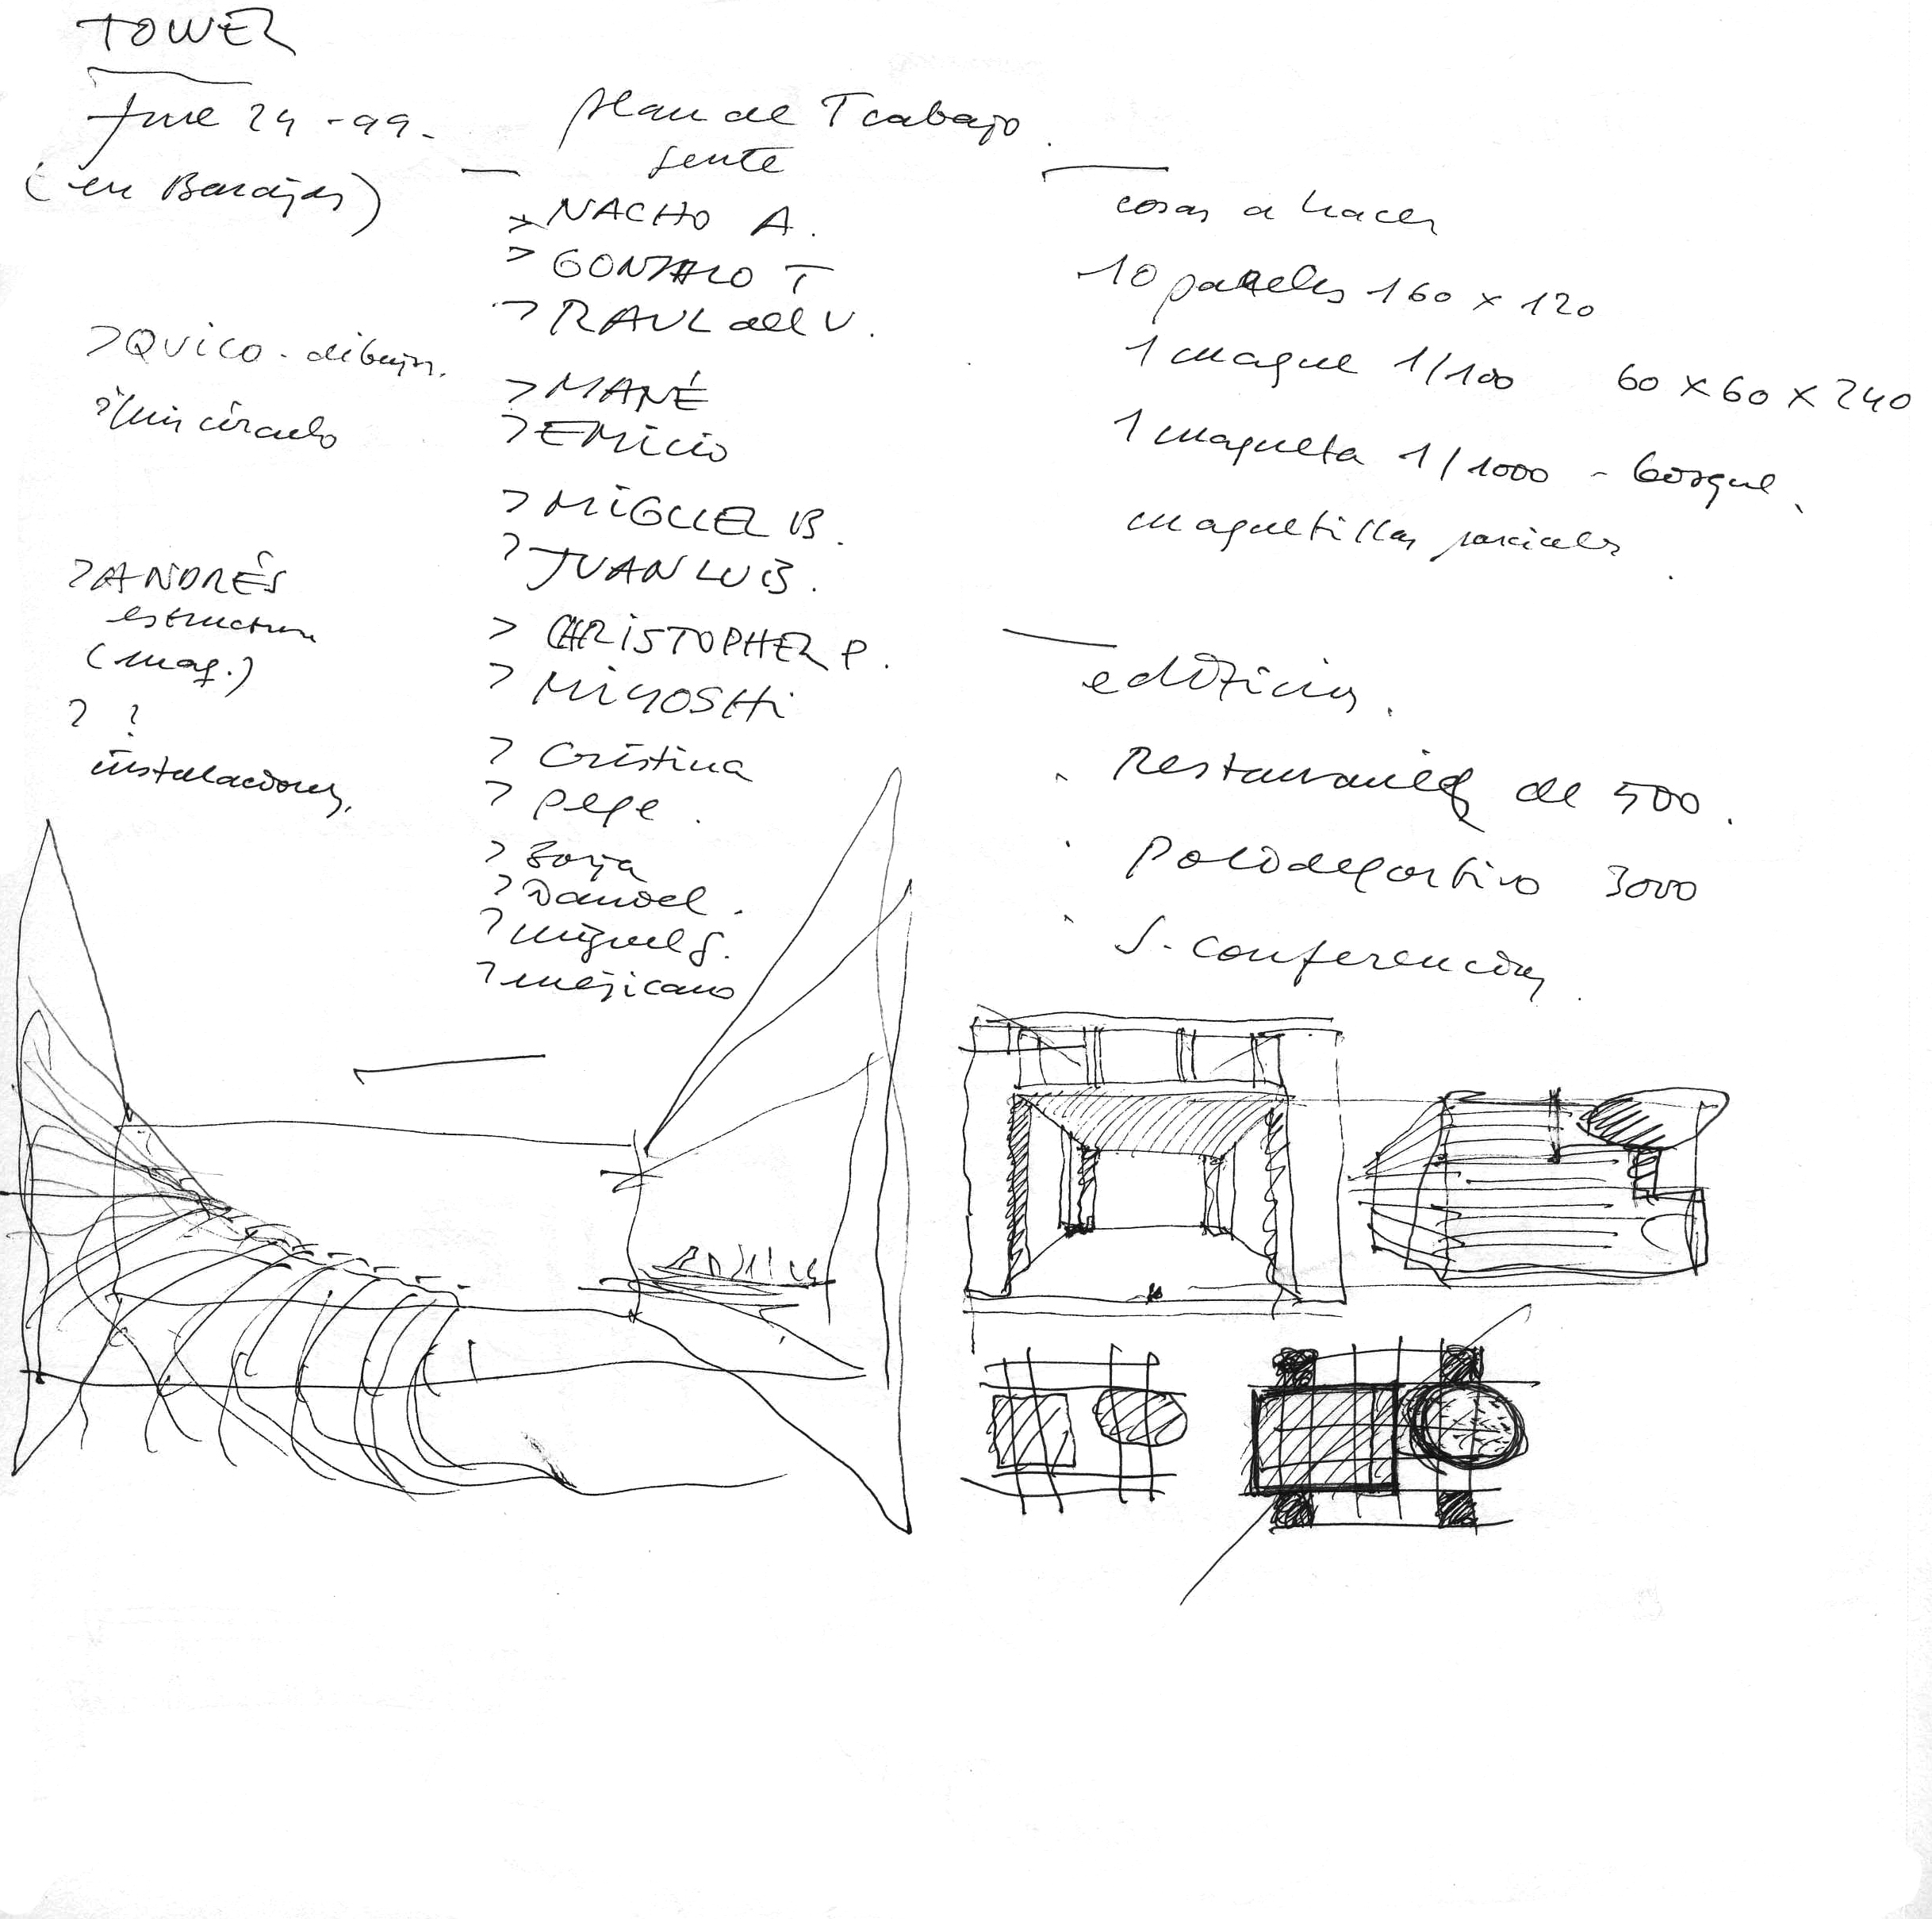 TOWER
June 24-99.
(en Barajas)
>QUICO - dibujos.
círculo
>ANDRÉS
estructura
(maq.)
? ?
instalaciones,
plan de Trabajo.
gente
> NACHO A.
> GONZALO T
> RAUL del V.
> MANÉ
> EMILIO
> MIGUEL B.
? JUAN LU B.
> CHRISTOPHER P.
> MIYOSHi
> Cristina
> pepe.
> Borja
? Daniel.
? miguel g.
? mejicano
cosas a hacer
10 paneles 160 x 120
1 maque 1/100 60 x 60 x 240
1 maqueta 1/1000 - bosque.
maquetillas parciales.
edificios.
Restaurante de 500.
Polideportivo 3000
S. conferencias.